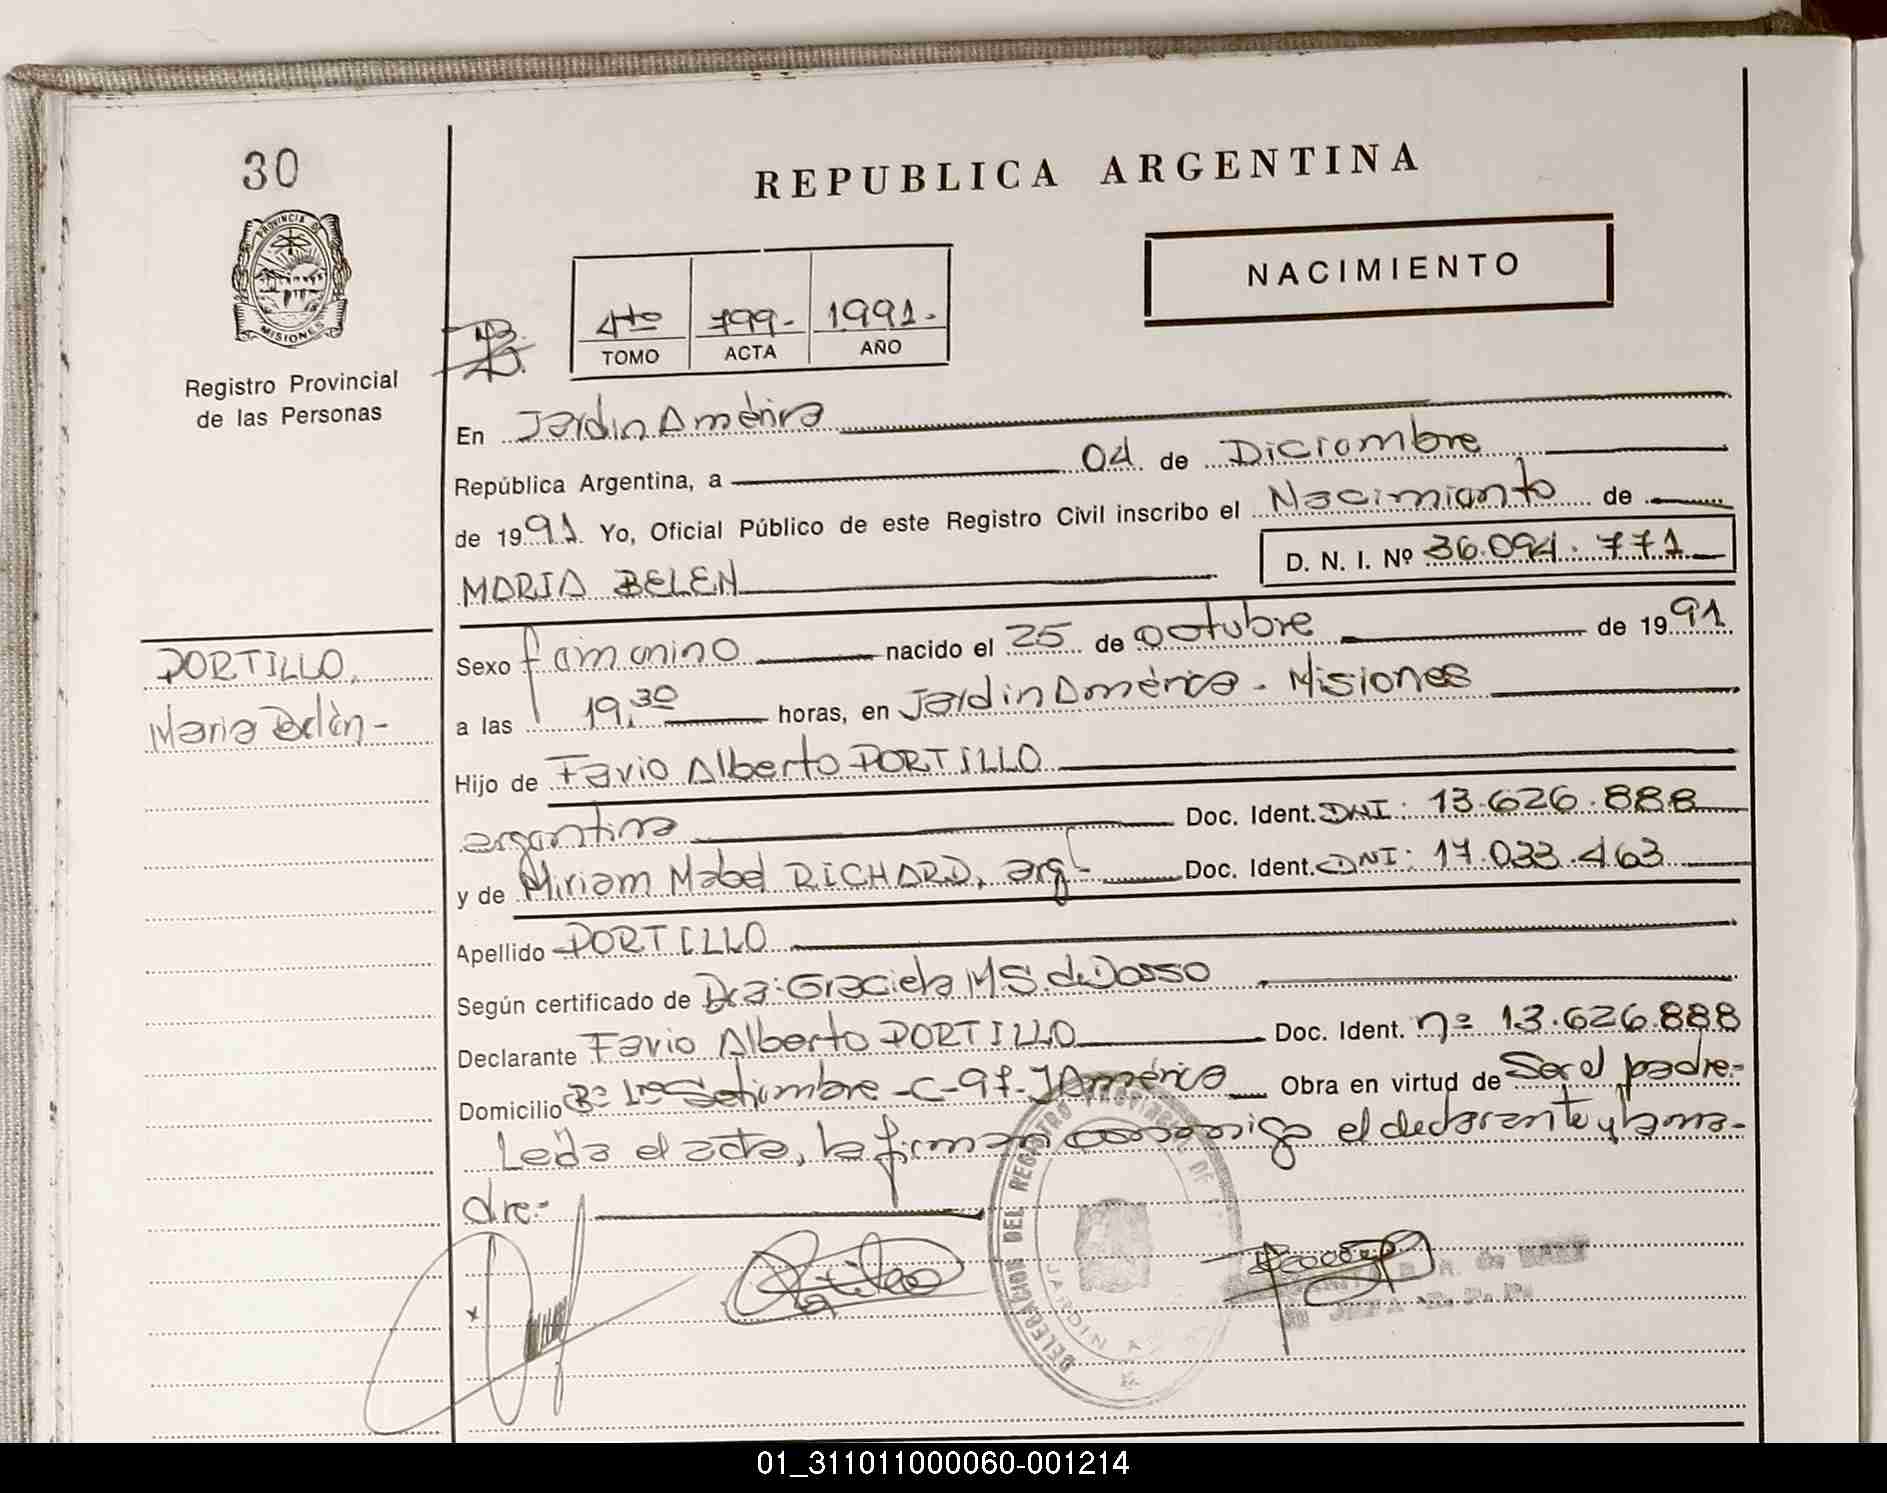 30
REPUBLICA ARGENTINA
PROVINCIA DE
MISIONES
NACIMIENTO
4to 799- 1991.
TOMO ACTA AÑO
Registro Provincial
de las Personas
En Jardin América
República Argentina, a 04 de Diciembre
de 1991 Yo, Oficial Público de este Registro Civil inscribo el Nacimiento de
MARIA BELEN
D. N. I. Nº 36.094.771
PORTILLO,
Maria Belén-
Sexo femenino nacido el 25 de octubre de 1991
a las 19,30 horas, en Jardin América - Misiones
Hijo de Favio Alberto PORTILLO
argentina Doc. Ident. DNI: 13.626.888
y de Miriam Mabel RICHARD, arg- Doc. Ident. DNI: 17.033.463
Apellido PORTILLO
Según certificado de Dra: Graciela M S. de Dasso
Declarante Favio Alberto PORTILLO Doc. Ident. nº 13.626.888
Domicilio Bº 1ro Setiembre -C-97- J América Obra en virtud de Ser el padre.-
Leída el acta, la firman conmigo el declarante y la ma-
dre.-
DELEGACION DEL REGISTRO PROVINCIAL DE
JARDIN A
01_311011000060-001214